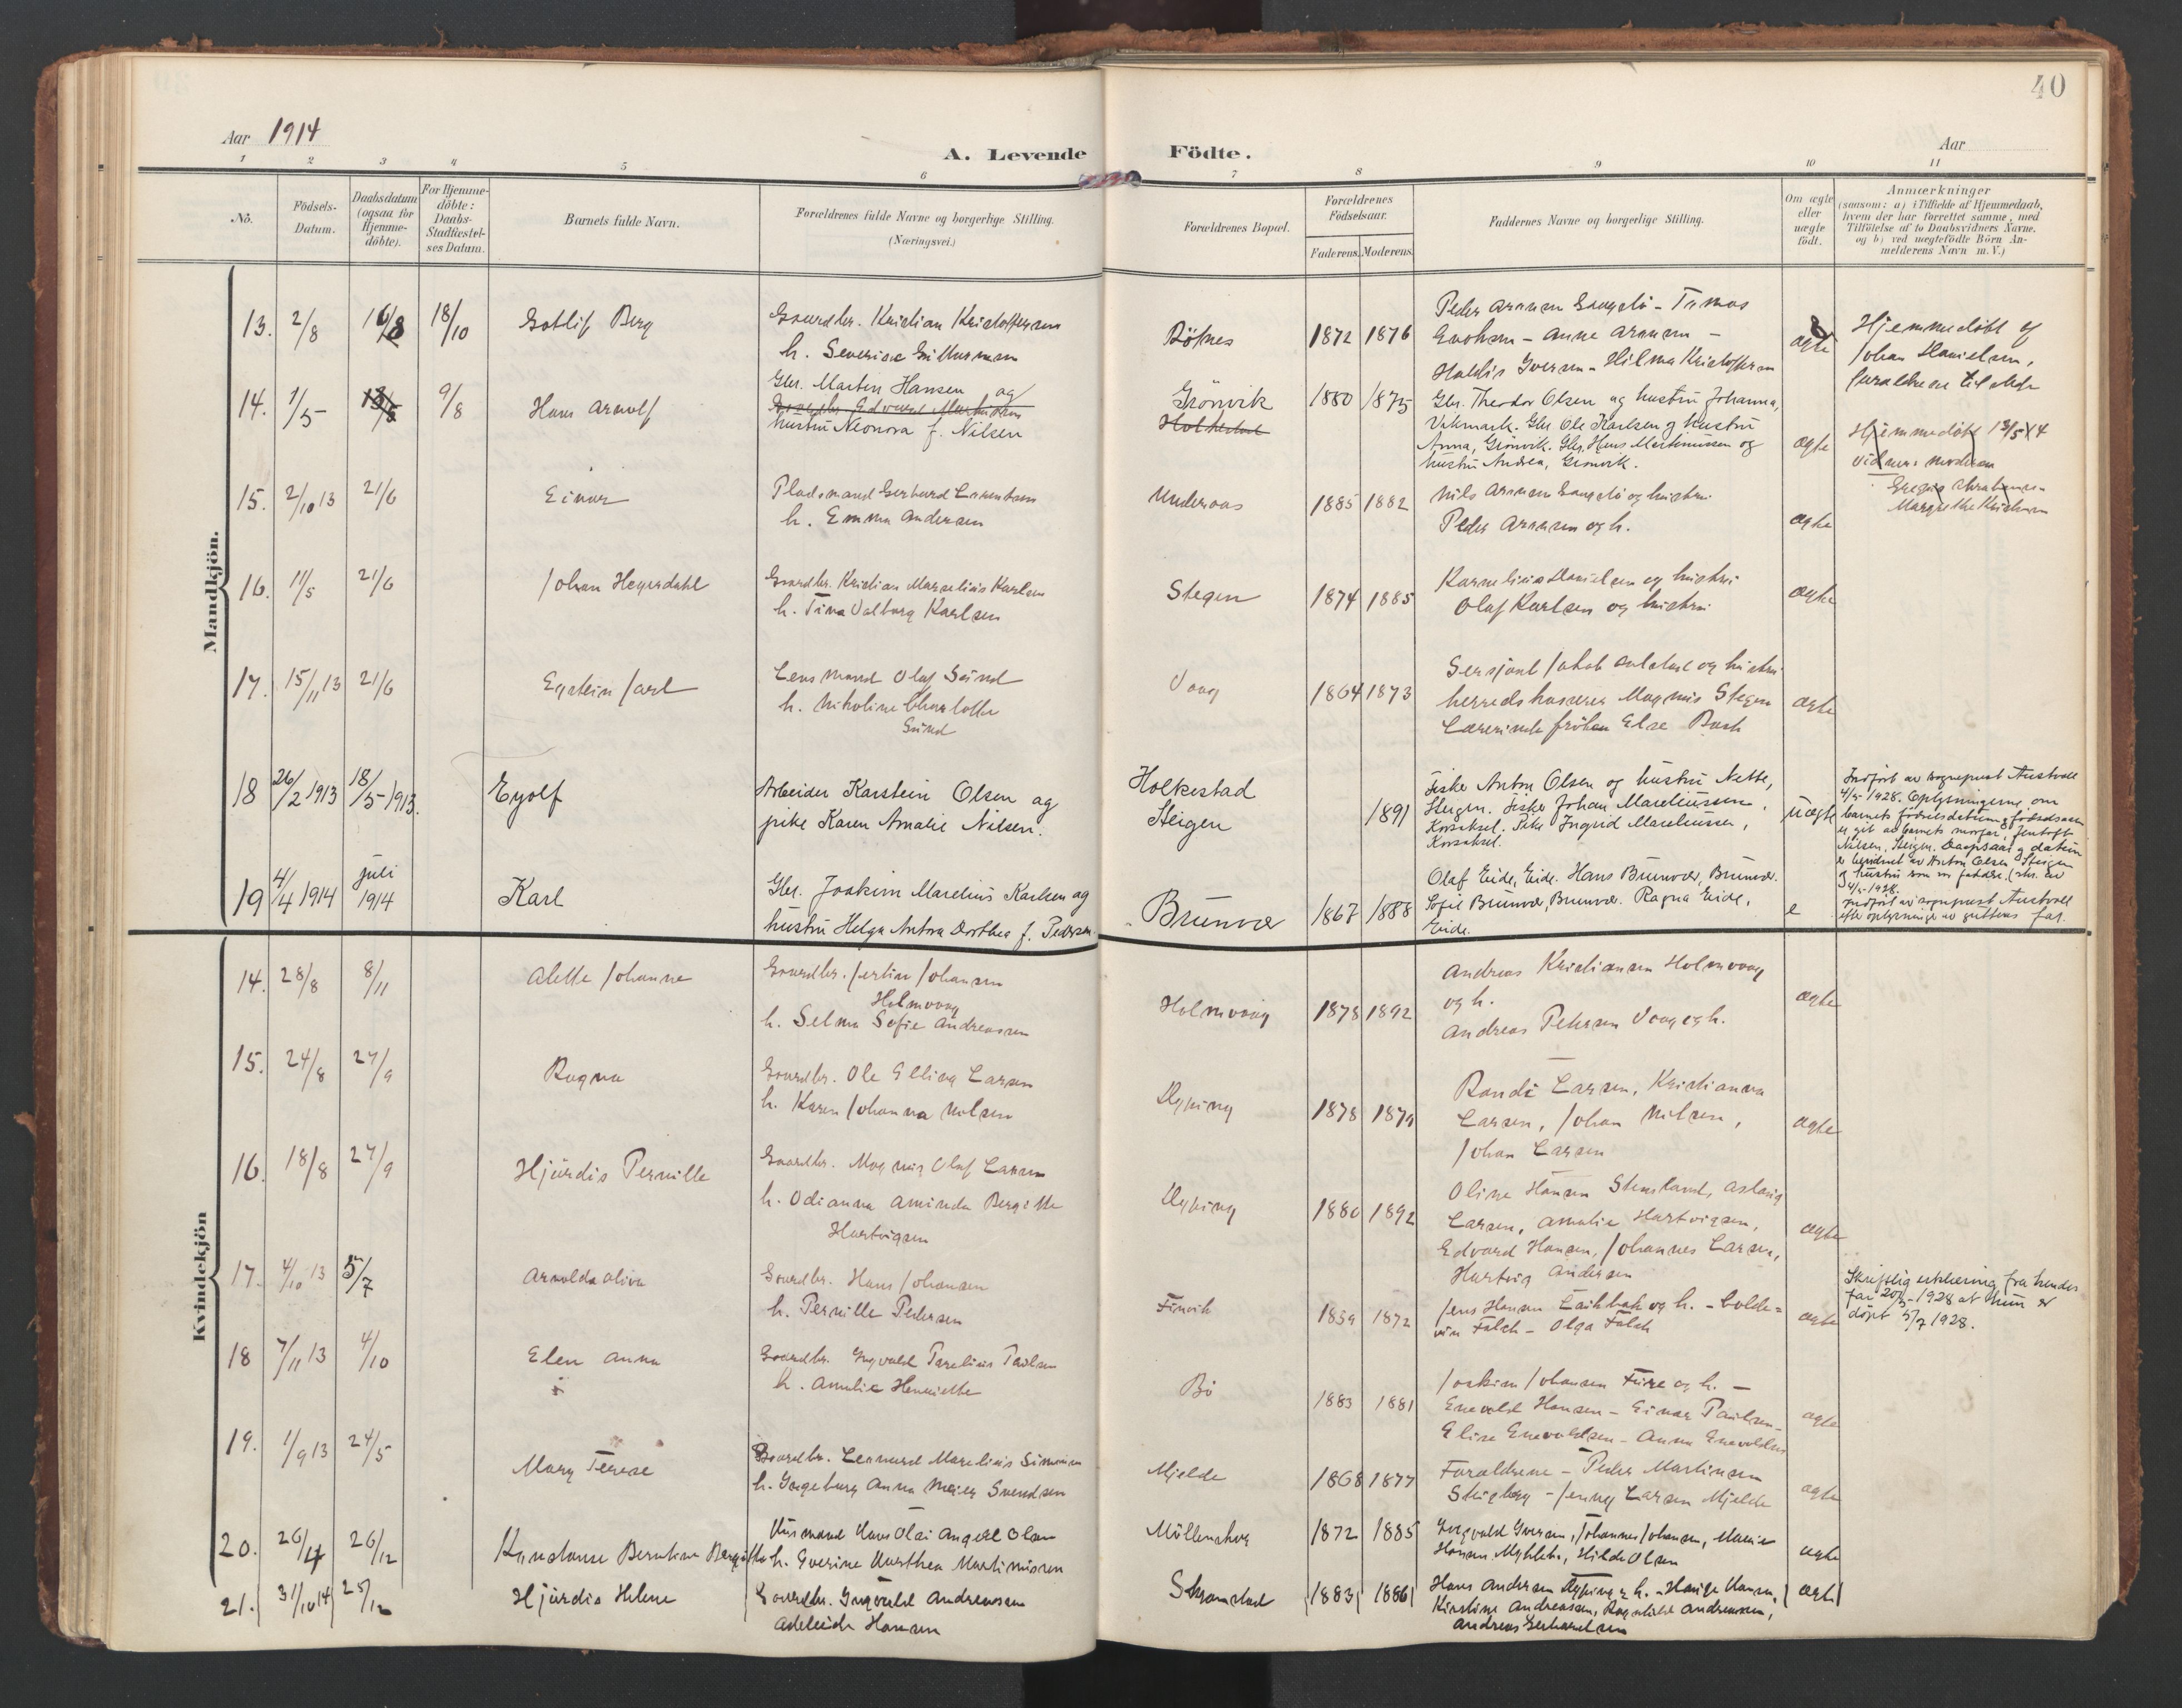 40
Aar 1914
Aar
A. Levende Födte.
1 2 3 4 5 6 7 8 9 10 11
No.
Födsels-
Datum.
Daabsdatum
(ogsaa for
Hjemme-
döbte).
For Hjemme-
döbte:
Daabs-
Stadfæstel-
ses Datum.
Barnets fulde Navn.
Forældrenes fulde Navne og borgerlige Stilling.
(Næringsvei.)
Forældrenes Bopæl.
Forældrenes
Födselsaar.
Faderens. Moderens.
Faddernes Navne og borgerlige Stilling.
Om ægte
eller
uægte
födt.
Anmærkninger
(saasom: a) i Tilfælde af Hjemmedaab,
hvem der har forrettet samme, med
Tilföielse af to Daabsvidners Navne.
og b) ved uægtefödte Börn An-
melderens Navn m. V.)
Mandkjön.
13. 2/8 16/8 18/10 Gotlif Berg
Gaardbr. Kristian Kristoffersen
h. Severine Guttormsen
1872 1876
Peder Aronsen
Anne Aronsen -
Haldis Iversen - Hilma Kristoffersen
ægte
Hjemmedöbt af
Johan Danielsen,
forældrene tilstede
14. 1/5 9/8 Hans Arnolf
Gbr. Martin Hansen og
hustru Leonora f. Nilsen
Grönvik
Holkestad
1880 1875
Gbr. Theodor Olsen og hustru Johanna,
Vikmark. Gbr. Ole Karlsen og hustru
Anna, Grönvik. Gbr. Hans Martinussen og
hustru Andrea, Grönvik.
ægte
Hjemmedöbt 13/5 14
Vidner: moderen
Margrethe Kristensen
15. 2/10 13 21/6 Einar
Pladsmand Gerhard Larentsen
h. Emma Andersen
Underaas
1885 1882
Nils Aronsen og hustru
Peder Aronsen og h.
ægte
16. 11/5 21/6 Johan Hegerdahl
Gaardbr. Kristian Marselius Karlsen
h. Tina Valborg Karlsen
Stegen
1874 1885
Kornelius Danielsen og hustru
Olaf Karlsen og hustru
ægte
17. 15/11 13 21/6 Eystein Jarl
Lensmand Olaf Sund
h. Nikoline Charlotte
Sund
Vaag
1864 1873
Sersjant Jakob og hustru
herredskasserer Magnus Stegen
Lærerinde fröken Else Bach
ægte
18 26/2 1913 18/5 1913. Eyolf
Arbeider Karstein Olsen og
pike Karen Amalie Nilsen.
Holkestad
Steigen
1891
Fisker Anton Olsen og hustru Nette,
Steigen. Fisker Johan Mareliussen,
Korsaksel. Pike Ingrid Mareliussen,
Korsaksel.
uægte
Indfört av sogneprest Austvoll
4/5 1928. Oplysningerne om
barnets födselsdatum og födselsaar
er git av barnets morfar, Jentoft
Nilsen, Steigen. Daapsaar og datum
er bevidnet av Anton Olsen Steigen
og hustru som var faddere. (skr. av
4/5 1928.
19 4/4 1914 juli
1914 Karl
Gbr. Joakim Marelius Karlsen og
hustru Helga Antora Dorthea f. Pedersen.
Brunvær
1867 1888
Olaf Eide, Eide. Hans Brunvær, Brunvær.
Sofie Brunvær, Brunvær. Ragna Eide,
Eide.
e
Indfört av sogneprest Austvoll
efter oplysninger av guttens far.
Kvindekjön
14. 28/8 8/11 Alette Johanne
Gaardbr. Jertin Johansen
Holmvaag
h. Selma Sofie Andreassen
Holmvaag
1878 1892
Andreas Kristiansen Holmvaag
og h.
Andreas Petersen Vaag og h.
ægte
15. 24/8 27/9 Ragna
Gaardbr. Ole Elling Larsen
h. Karen Johanna Nilsen
Dyping
1878 1879
Randi Larsen, Kristianna
Larsen, Johan Nilsen,
Johan Larsen
ægte
16. 18/8 27/9 Hjördis Pernille
Gaardbr. Magnus Olaf Larsen
h. Odianna Aminda Bergitte
Hartvigsen
Dyping
1880 1892
Oline Hansen Stensland, Aslaug
Larsen, Amalie Hartvigsen,
Edvard Hansen, Johannes Larsen,
Hartvig Andersen
ægte
17. 4/10 13 5/7 Arnolda Oliva
Gaardbr. Hans Johansen
h. Pernille Pedersen
Finvik
1859 1872
Jens Hansen Laskbak og h. - Bolde=
vin Falch - Olga Falch
ægte
Skriftlig erklæring fra hendes
far 20/5 - 1928 at hun er
döpt 5/7 1928.
18 7/11 13 4/10 Elen Anna
Gaardbr. Ingvald Parelius Paulsen
h. Amalie Henriette
Bö
1883 1881
Joakim Johansen Fure og h. -
Enevold Hansen - Einar Paulsen
Elise Enevoldsen - Anna Enevoldsen
ægte
19. 1/9 13 24/5 Mary Terese
Gaardbr. Leonard Marelius Simonsen
h. Ingeborg Anna Meier Svendsen
Mjelde
1868 1877
Forældrene - Peder Martinsen
Steigberg - Jenny Larsen Mjelde
ægte
20. 26/4 26/12 Konstanse Berntine Bergitte
Husmand Hans Olai Angell Olsen
h. Everine Marthea Martinussen
1872 1885
Ingvald Iversen, Johannes Johansen, Marie
Hansen Myklebo, Hilda Olsen
ægte
21. 31/10 14 25/12 Hjördis Helene
Gaardbr. Ingvald Andreassen
Adeleide Hansen
Skramstad
1883 1886
Hans Andersen Dyping og h. - Hansen,
Kirstine Andreassen, Ragnhild Andreassen,
Andreas Gerhardsen
ægte